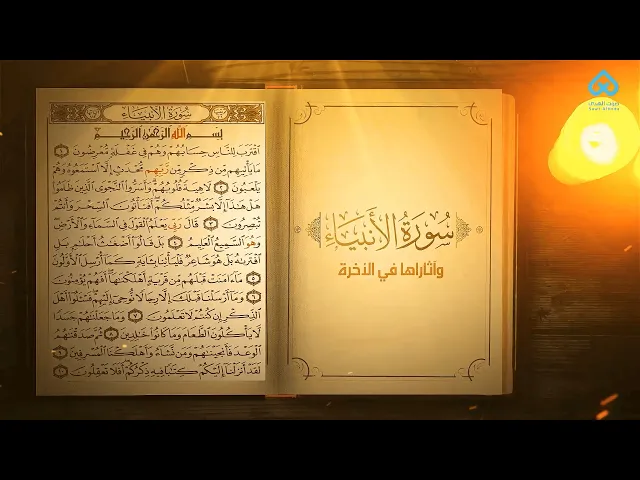 سُورَةُ الأَنْبِيَاءِ
بِسْمِ اللَّهِ الرَّحْمَٰنِ الرَّحِيمِ
اقْتَرَبَ لِلنَّاسِ حِسَابُهُمْ وَهُمْ فِي غَفْلَةٍ مُعْرِضُونَ ١
مَا يَأْتِيهِم مِّن ذِكْرٍ مِّن رَّبِّهِم مُّحْدَثٍ إِلَّا اسْتَمَعُوهُ وَهُمْ
يَلْعَبُونَ ٢ لَاهِيَةً قُلُوبُهُمْ وَأَسَرُّوا النَّجْوَى الَّذِينَ ظَلَمُوا
هَلْ هَٰذَا إِلَّا بَشَرٌ مِّثْلُكُمْ أَفَتَأْتُونَ السِّحْرَ وَأَنتُمْ
تُبْصِرُونَ ٣ قَالَ رَبِّي يَعْلَمُ الْقَوْلَ فِي السَّمَاءِ وَالْأَرْضِ
وَهُوَ السَّمِيعُ الْعَلِيمُ ٤ بَلْ قَالُوا أَضْغَاثُ أَحْلَامٍ بَلِ
افْتَرَاهُ بَلْ هُوَ شَاعِرٌ فَلْيَأْتِنَا بِآيَةٍ كَمَا أُرْسِلَ الْأَوَّلُونَ
٥ مَا آمَنَتْ قَبْلَهُم مِّن قَرْيَةٍ أَهْلَكْنَاهَا أَفَهُمْ يُؤْمِنُونَ
٦ وَمَا أَرْسَلْنَا قَبْلَكَ إِلَّا رِجَالًا نُّوحِي إِلَيْهِمْ فَاسْأَلُوا أَهْلَ
الذِّكْرِ إِن كُنتُمْ لَا تَعْلَمُونَ ٧ وَمَا جَعَلْنَاهُمْ جَسَدًا
لَّا يَأْكُلُونَ الطَّعَامَ وَمَا كَانُوا خَالِدِينَ ٨ ثُمَّ صَدَقْنَاهُمُ
الْوَعْدَ فَأَنجَيْنَاهُمْ وَمَن نَّشَاءُ وَأَهْلَكْنَا الْمُسْرِفِينَ ٩
لَقَدْ أَنزَلْنَا إِلَيْكُمْ كِتَابًا فِيهِ ذِكْرُكُمْ أَفَلَا تَعْقِلُونَ ١٠
سُورَةُ الأَنْبِيَاءِ
وآثارها في الآخرة
صوت الهدى